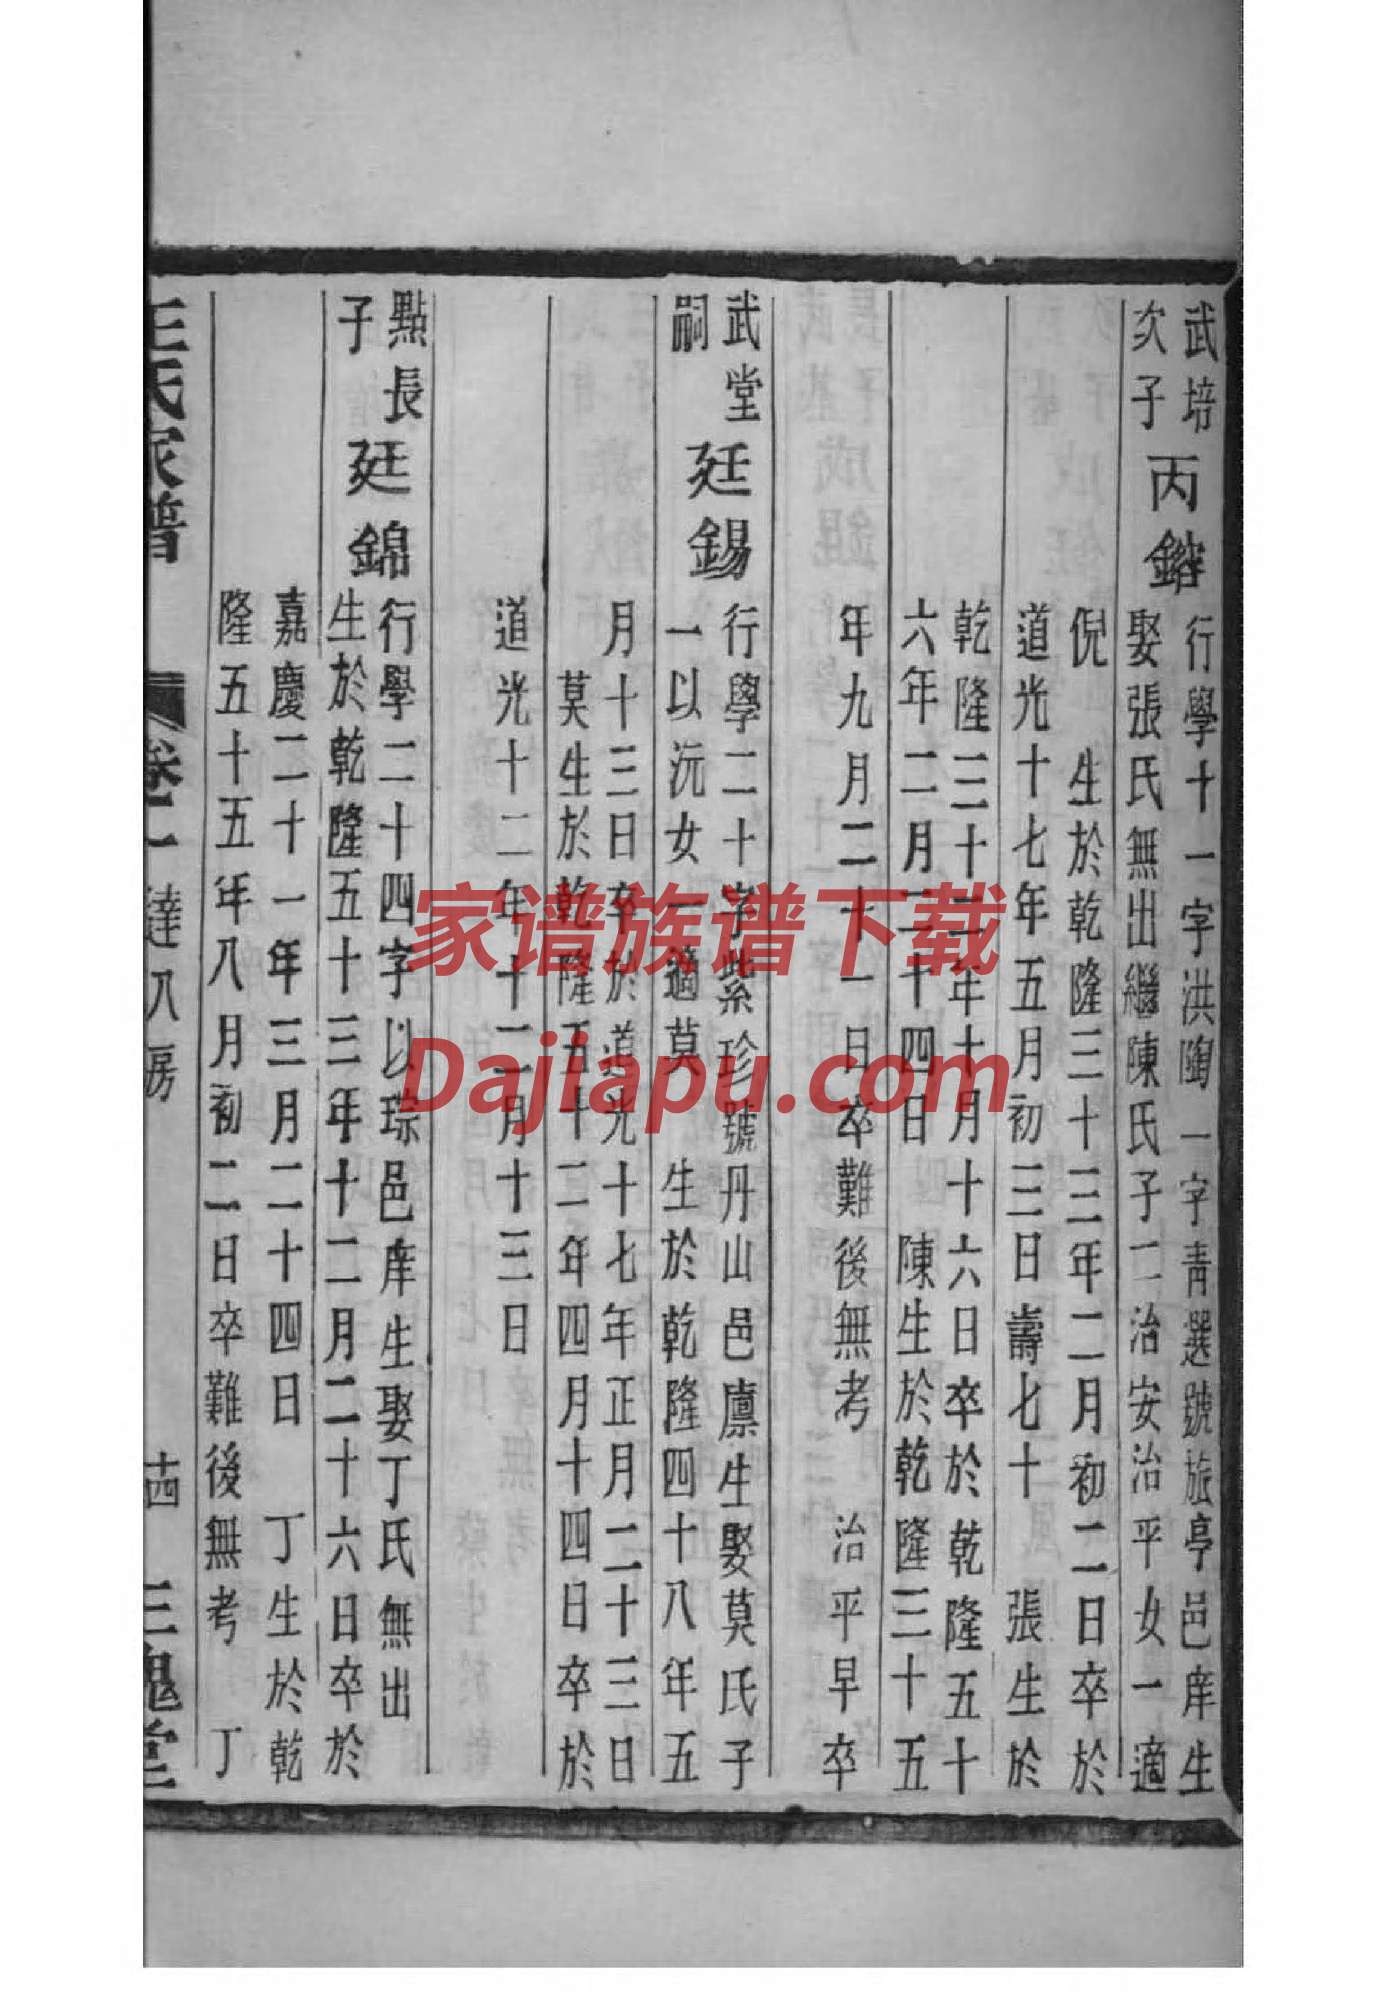 武培
次子
丙鎋
行學十一字洪陶一字青選號旅亭邑庠生
娶張氏無出繼陳氏子二治安治平女一適
倪 生於乾隆三十三年二月初二日卒於
道光十七年五月初三日壽七十 張生於
乾隆三十二年十月十六日卒於乾隆五十
六年二月二十四日 陳生於乾隆三十五
年九月二十一日卒難後無考 治平早卒
武堂
嗣
廷錫
行學二十字紫珍號丹山邑廩生娶莫氏子
一以沅女一適莫 生於乾隆四十八年五
月十三日卒於道光十七年正月二十三日
莫生於乾隆五十二年四月十四日卒於
道光十二年十二月十三日
點長
子
廷錦
行學二十四字以琮邑庠生娶丁氏無出
生於乾隆五十三年十二月二十六日卒於
嘉慶二十一年三月二十四日 丁生於乾
隆五十五年八月初二日卒難後無考 丁
王氏家譜
卷二 達八房
十四
三槐堂
家谱族谱下载
Dajiapu.com